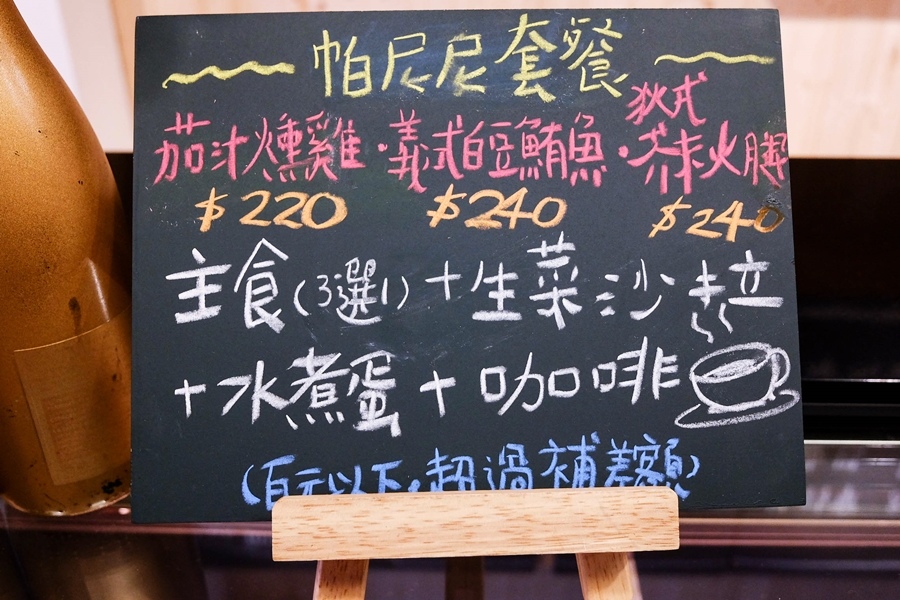 帕尼尼套餐
茄汁燻雞·義式白豆鮪魚·狄式芥末火腿
$220 $240 $240
主食(3選1)+生菜沙拉
+水煮蛋+咖啡
(百元以下,超過補差額)